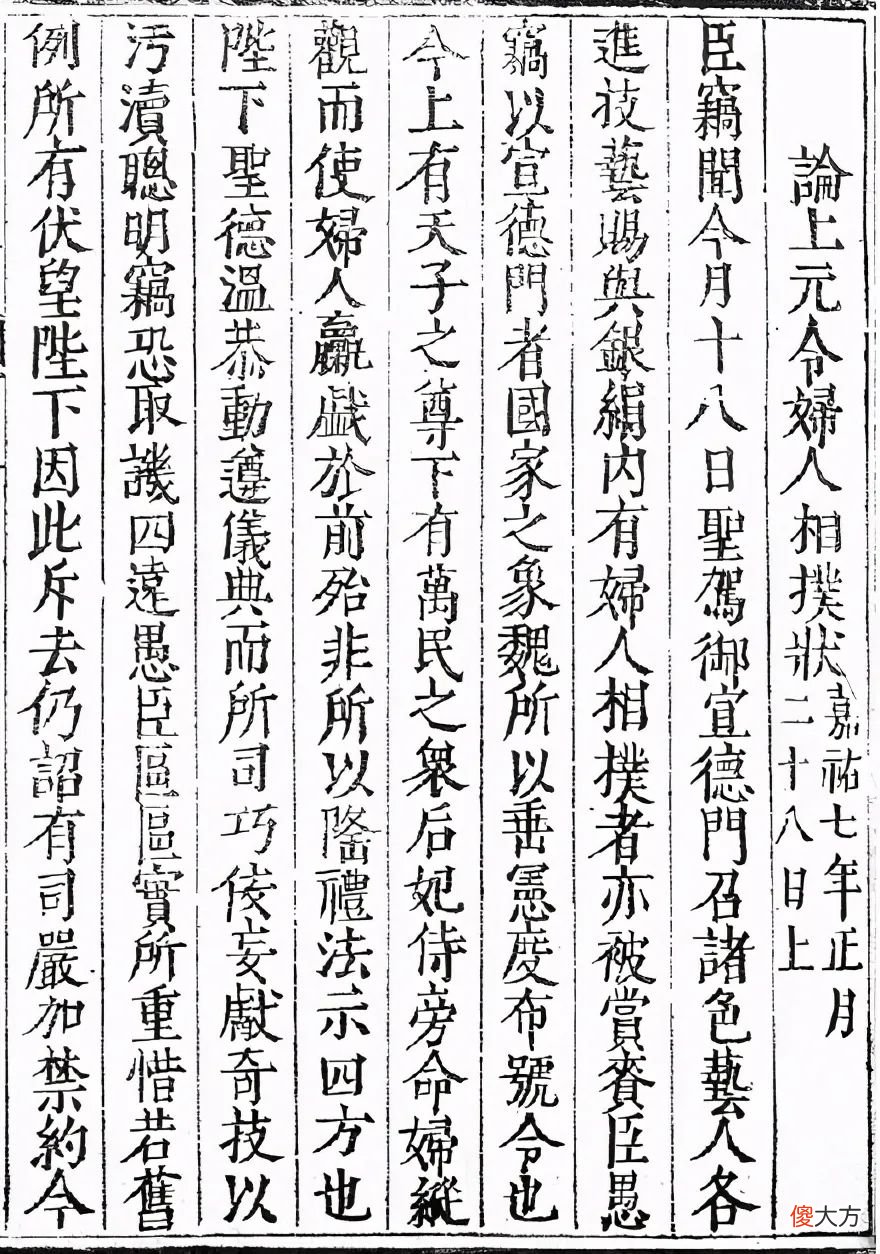 論上元令婦人相撲狀嘉祐七年正月二十八日上
臣竊聞今月十八日聖駕御宣德門召諸色藝人各
進技藝賜與銀絹内有婦人相撲者亦被賞賚臣愚
竊以宣德門者國家之象魏所以垂憲度布號令也
今上有天子之尊下有萬民之衆后妃侍旁命婦縱
觀而使婦人臝戯於前殆非所以隆禮法示四方也
陛下聖德溫恭動遵儀典而所司巧佞妄獻奇技以
汚瀆聰明竊恐取譏四遠愚臣區區實所重惜若舊
例所有伏望陛下因此斥去仍詔有司嚴加禁約今
傻大方